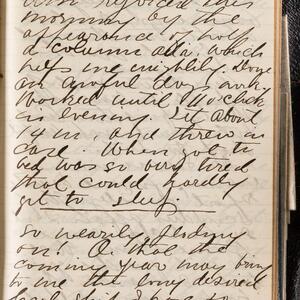 rejoiced this
morning by the
appearance of half
a column ada. which
helps me mightily. Done
an awful days work.
Worked until 11 o'clock
in evening. Set about
14 m. and threw in
case. When got to
bed was so very tired
that could hardly
get to sleep.
So wearily plodging
on! O that the
coming year may bring
to me the long desired